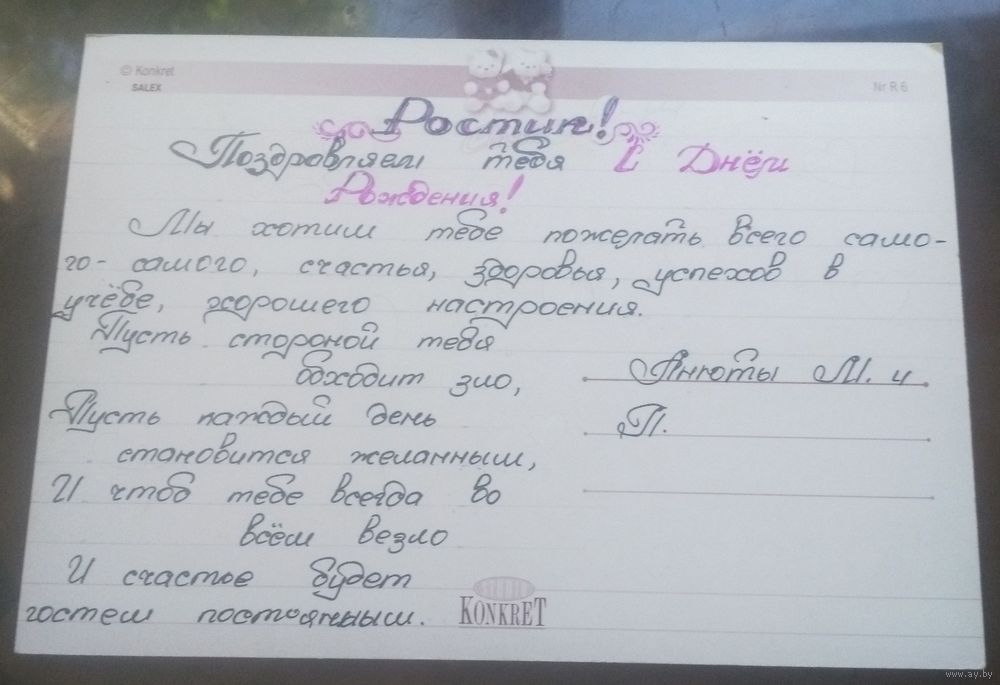 © Konkret
SALEX
Nr R 6
Ростик!
Поздравляем тебя с Днём
Рождения!
Мы хотим тебе пожелать всего само-
го-самого, счастья, здоровья, успехов в
учёбе, хорошего настроения.
Пусть стороной тебя
обходит зло,
Пусть каждый день
становится желанным,
И чтоб тебе всегда во
всём везло
И счастье будет
гостем постоянным.
Анюты М. и
П.
KONKRET
www.ay.by